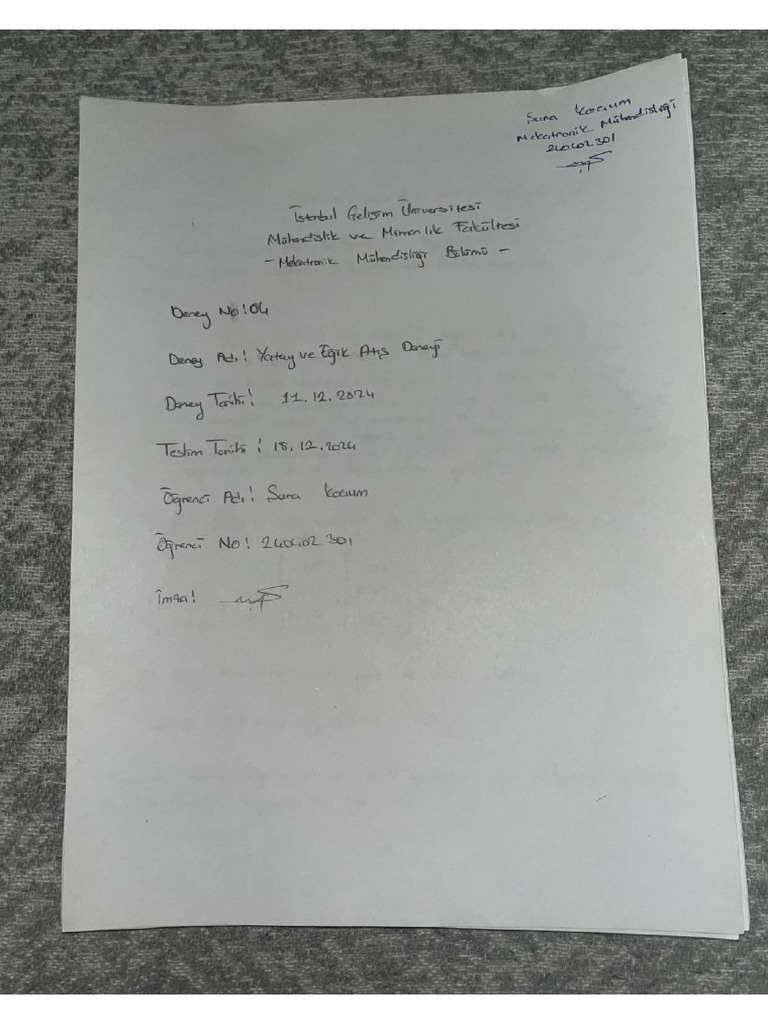 Suna Kocıum
Mekatronik Mühendisliği
240402301
İstanbul Gelişim Üniversitesi
Mühendislik ve Mimarlık Fakültesi
- Mekatronik Mühendisliği Bölümü -
Deney No: 04
Deney Adı: Yatay ve Eğik Atış Deneyi
Deney Tarihi: 11.12.2024
Teslim Tarihi: 18.12.2024
Öğrenci Adı: Suna Kocıum
Öğrenci No: 240402301
İmza: